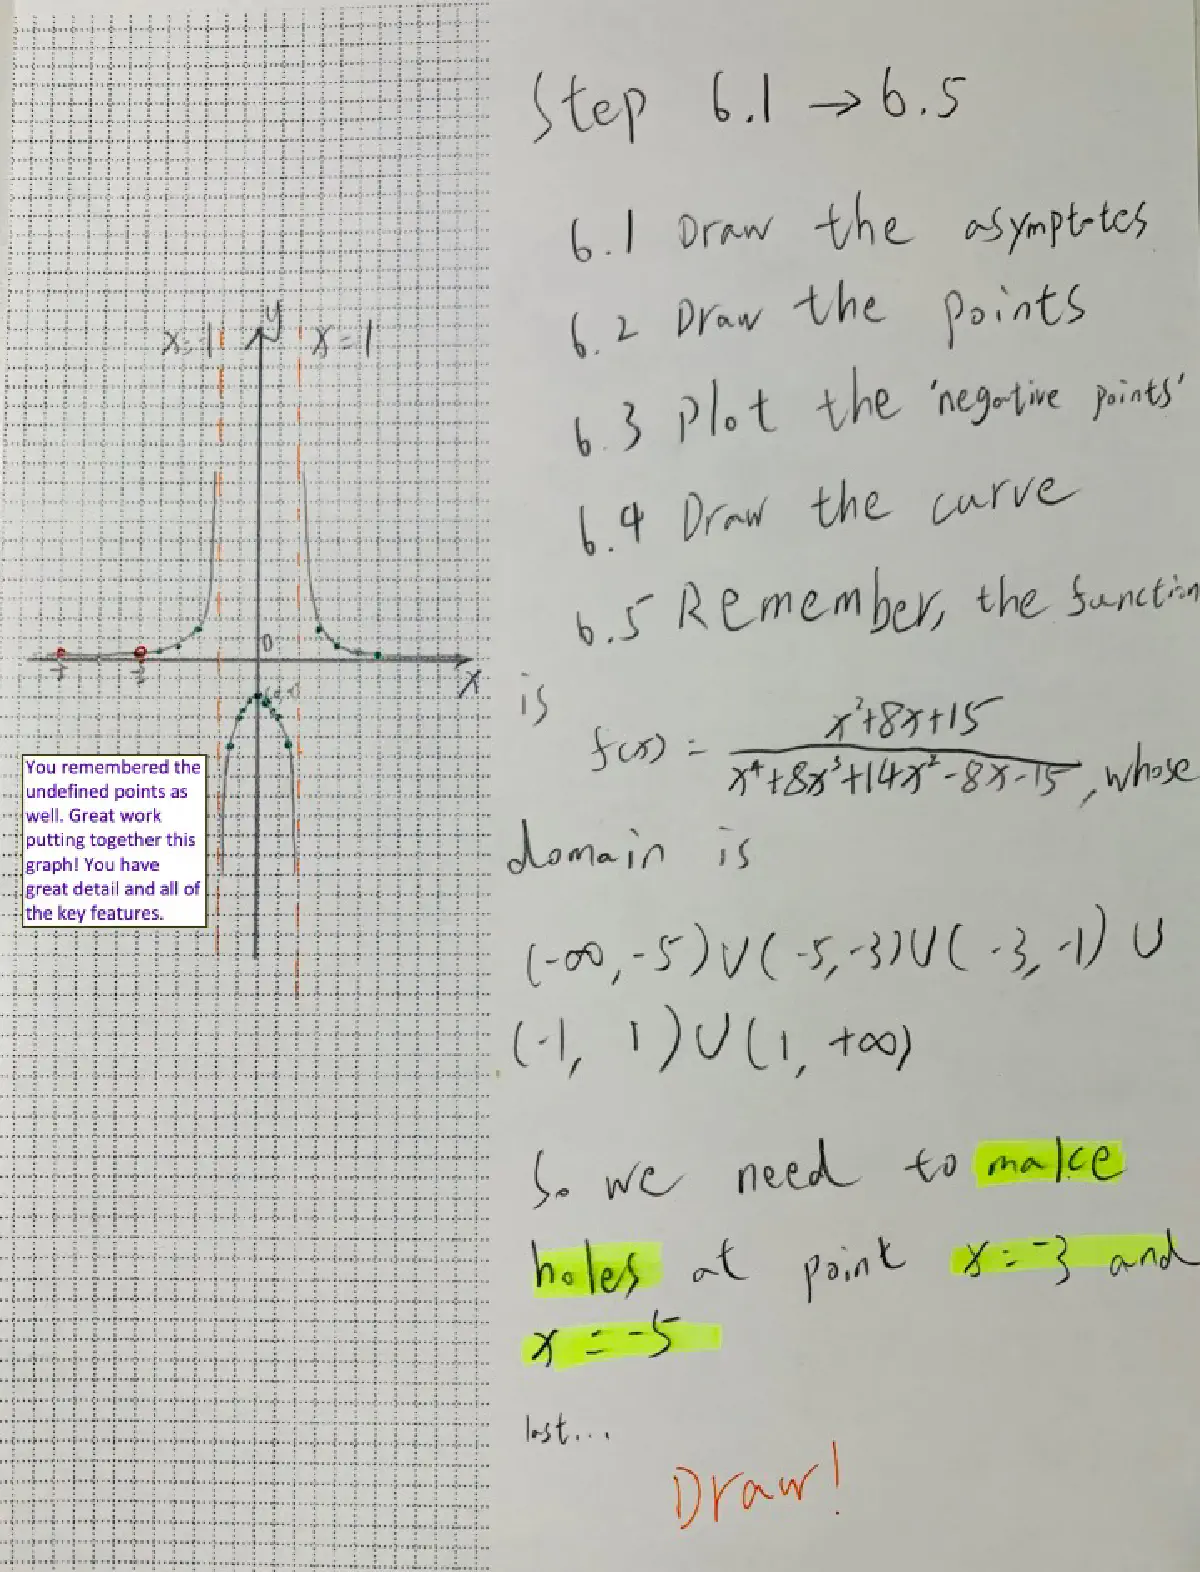 Step 6.1 → 6.5
6.1 Draw the asymptotes
6.2 Draw the points
6.3 Plot the 'negative points'
6.4 Draw the curve
6.5 Remember, the function
is f(x) = x²+8x+15 / x⁴+8x³+14x²-8x-15, whose
domain is
(-∞, -5) ∪ (-5, -3) ∪ (-3, -1) ∪
(-1, 1) ∪ (1, +∞)
So we need to make
holes at point x = -3 and
x = -5
last...
Draw!
x=-1
y
x=1
0
x
You remembered the
undefined points as
well. Great work
putting together this
graph! You have
great detail and all of
the key features.